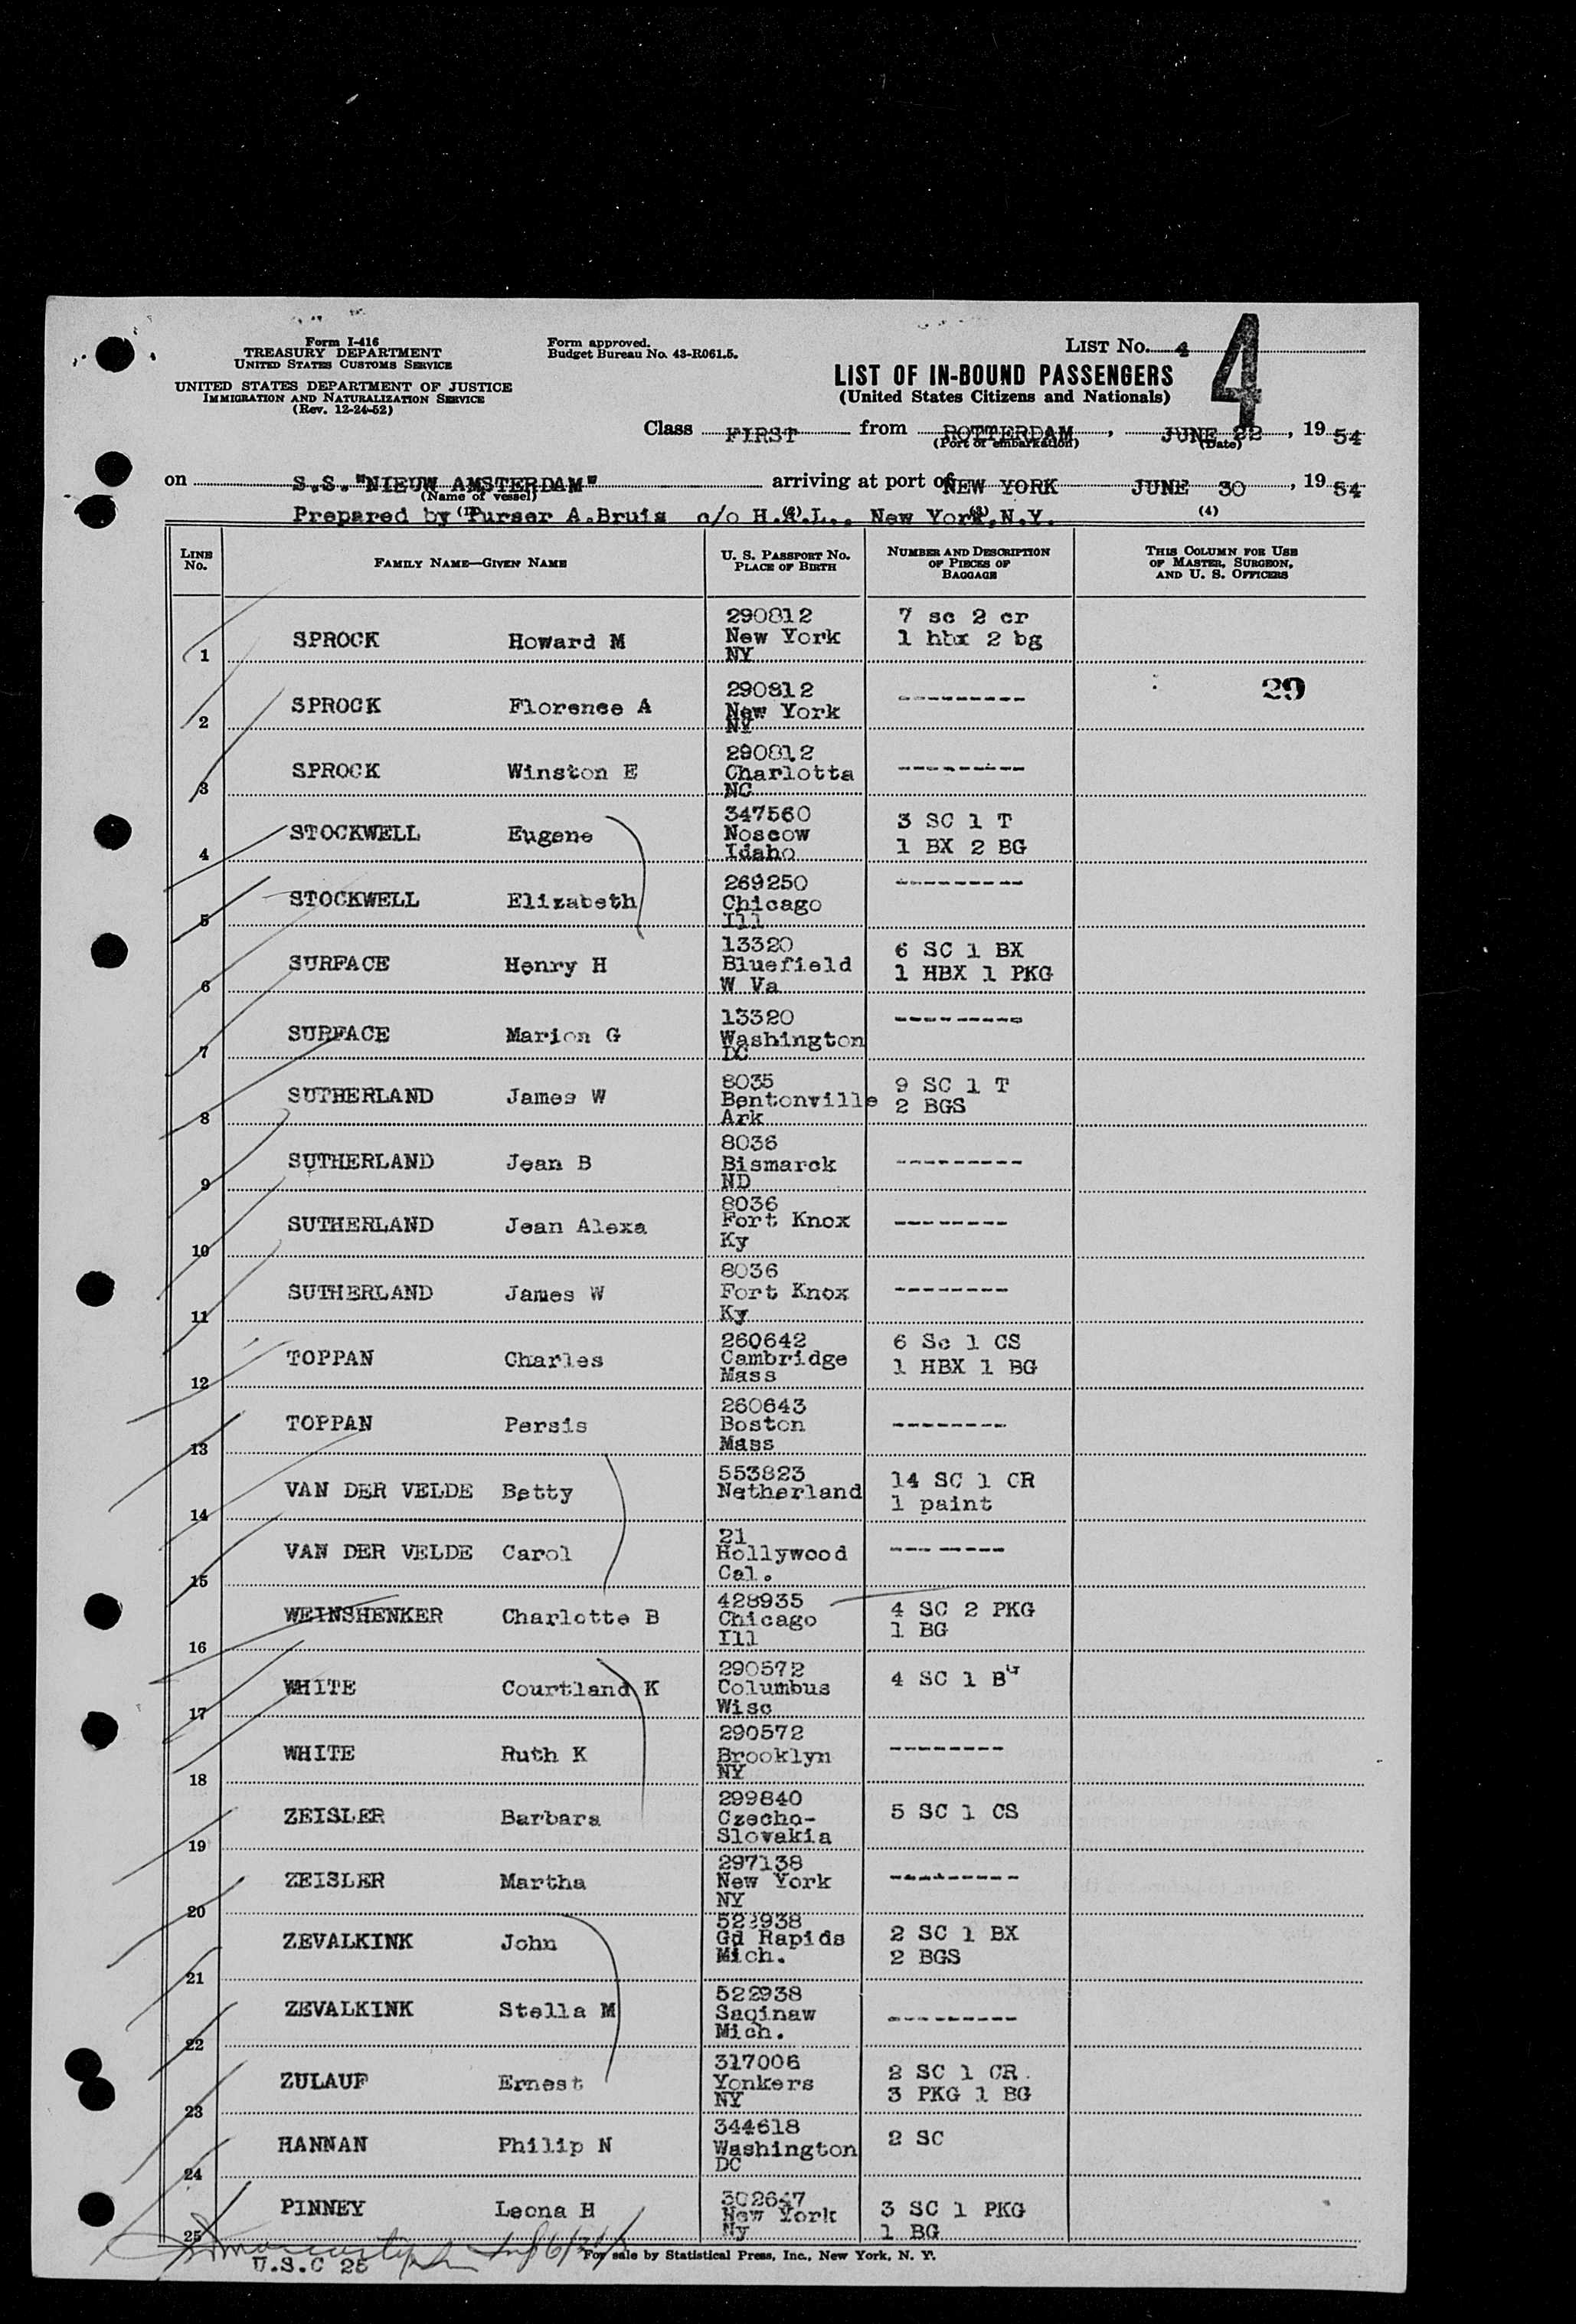 Form I-416
TREASURY DEPARTMENT
UNITED STATES CUSTOMS SERVICE
UNITED STATES DEPARTMENT OF JUSTICE
IMMIGRATION AND NATURALIZATION SERVICE
(Rev. 12-24-52)
Form approved.
Budget Bureau No. 43-R061.5.
LIST NO. 4
4
LIST OF IN-BOUND PASSENGERS
(United States Citizens and Nationals)
Class FIRST from ROTTERDAM, JUNE 22, 1954
(Port of embarkation) (Date)
on S.S."NIEUW AMSTERDAM" arriving at port of NEW YORK JUNE 30, 1954
(Name of vessel)
Prepared by Purser A.Bruis c/o H.A.L., New York,N.Y.
(1) (2) (3) (4)
LINE NO. FAMILY NAME—GIVEN NAME U. S. PASSPORT NO. PLACE OF BIRTH NUMBER AND DESCRIPTION OF PIECES OF BAGGAGE THIS COLUMN FOR USE OF MASTER, SURGEON, AND U. S. OFFICERS
1 SPROCK Howard M 290812 New York NY 7 sc 2 cr 1 hbx 2 bg
29
2 SPROCK Florence A 290812 New York NY ---------
3 SPROCK Winston E 290812 Charlotta NC ---------
4 STOCKWELL Eugene 347560 Noscow Idaho 3 SC 1 T 1 BX 2 BG
5 STOCKWELL Elizabeth 269250 Chicago Ill ---------
6 SURFACE Henry H 13320 Bluefield W Va 6 SC 1 BX 1 HBX 1 PKG
7 SURFACE Marion G 13320 Washington DC ---------
8 SUTHERLAND James W 8035 Bentonville Ark 9 SC 1 T 2 BGS
9 SUTHERLAND Jean B 8036 Bismarck ND ---------
10 SUTHERLAND Jean Alexa 8036 Fort Knox Ky --------
11 SUTHERLAND James W 8036 Fort Knox Ky --------
12 TOPPAN Charles 260642 Cambridge Mass 6 Sc 1 CS 1 HBX 1 BG
13 TOPPAN Persis 260643 Boston Mass --------
14 VAN DER VELDE Betty 553823 Netherland 14 SC 1 CR 1 paint
15 VAN DER VELDE Carol 21 Hollywood Cal. --------
16 WEINSHENKER Charlotte B 428935 Chicago Ill 4 SC 2 PKG 1 BG
17 WHITE Courtland K 290572 Columbus Wisc 4 SC 1 BG
18 WHITE Ruth K 290572 Brooklyn NY --------
19 ZEISLER Barbara 299840 Czecho-Slovakia 5 SC 1 CS
20 ZEISLER Martha 297138 New York NY ---------
21 ZEVALKINK John 522938 Gd Rapids Mich. 2 SC 1 BX 2 BGS
22 ZEVALKINK Stella M 522938 Saginaw Mich. ---------
23 ZULAUF Ernest 317006 Yonkers NY 2 SC 1 CR. 3 PKG 1 BG
24 HANNAN Philip N 344618 Washington DC 2 SC
25 PINNEY Leona H 302647 New York Ny 3 SC 1 PKG 1 BG
U.S.C 25
For sale by Statistical Press, Inc., New York, N. Y.